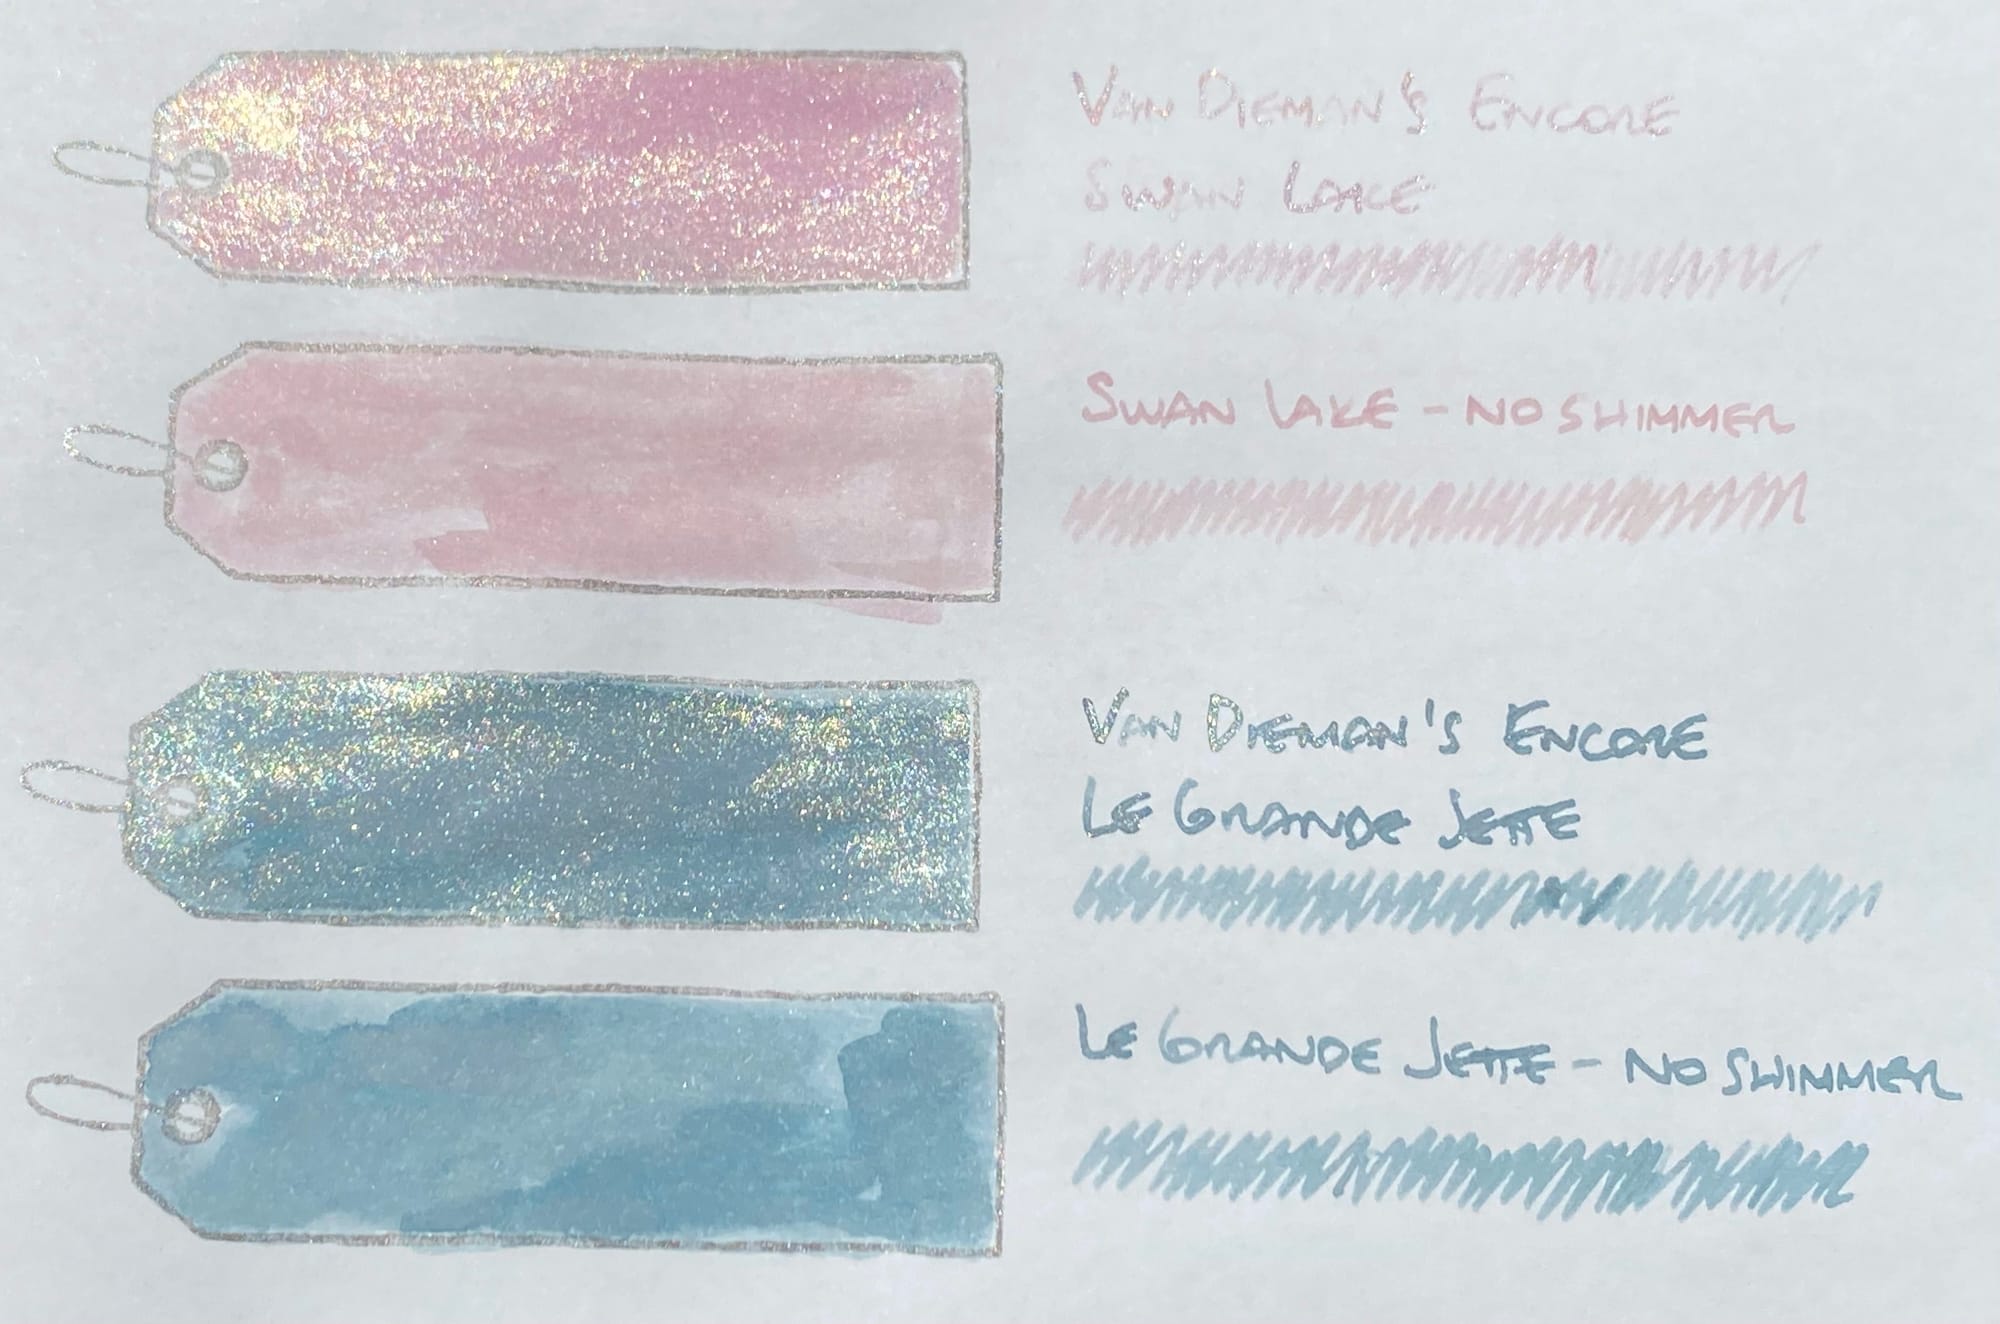 VAN DIEMAN'S ENCORE
SWAN LAKE
SWAN LAKE - NO SHIMMER
VAN DIEMAN'S ENCORE
LE GRANDE JETTE
LE GRANDE JETTE - NO SHIMMER